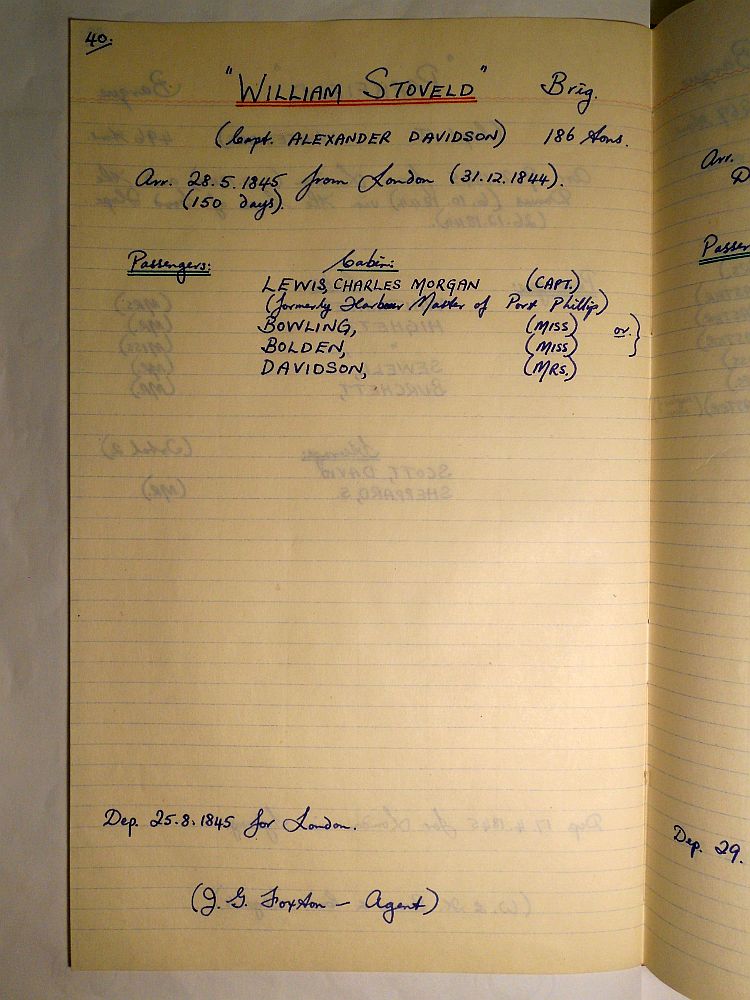 40.
"WILLIAM STOVELD" Brig.
(Capt. ALEXANDER DAVIDSON) 186 tons.
Arr. 28.5.1845 from London (31.12.1844).
(150 days).
Passengers: Cabin:
LEWIS, CHARLES MORGAN (CAPT.)
(formerly Harbour Master of Port Phillip)
BOWLING, (MISS) or }
BOLDEN, (MISS)
DAVIDSON, (MRS.)
Dep. 25.8.1845 for London.
(J. G. Foxton - Agent)
Arr.
D
Passen
Dep. 29.